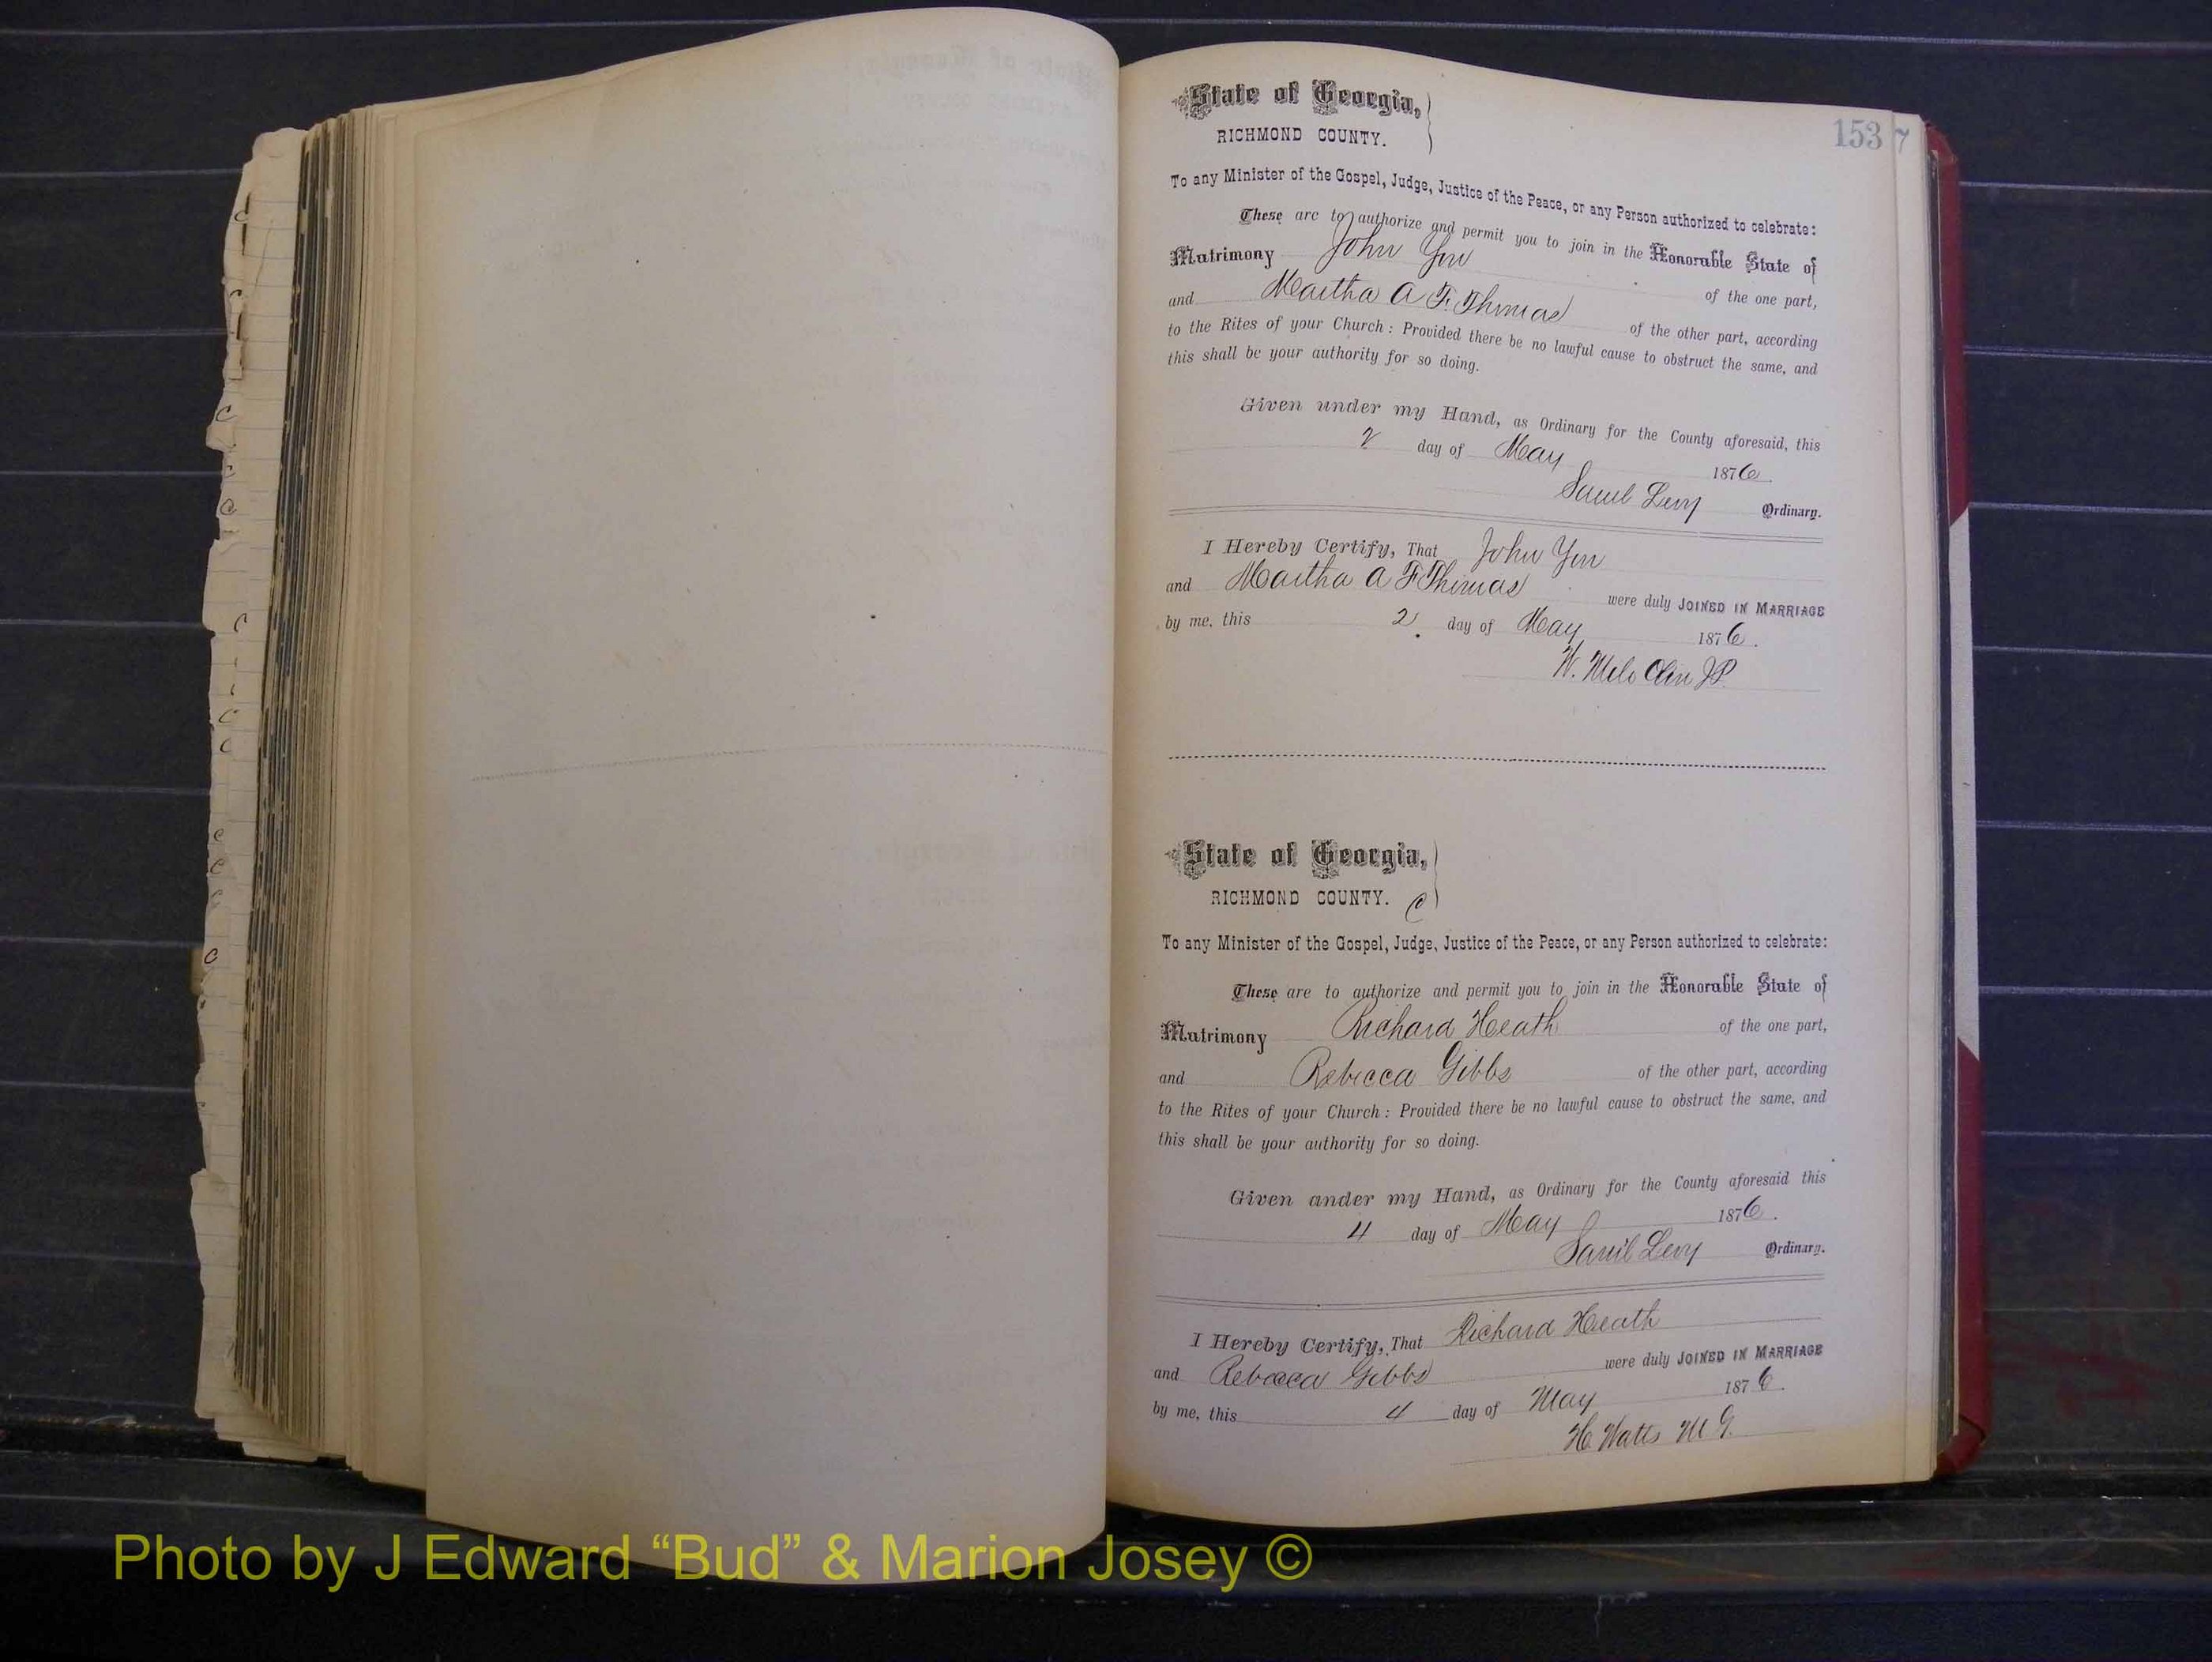 State of Georgia,
RICHMOND COUNTY.
153 7
To any Minister of the Gospel, Judge, Justice of the Peace, or any Person authorized to celebrate:
These are to authorize and permit you to join in the Honorable State of
Matrimony John
of the one part,
and Martha A F. Thomas of the other part, according
to the Rites of your Church: Provided there be no lawful cause to obstruct the same, and
this shall be your authority for so doing.
Given under my Hand, as Ordinary for the County aforesaid, this
2 day of May 1876.
Saml Levy Ordinary.
I Hereby Certify, That John
and Martha A F Thomas were duly JOINED IN MARRIAGE
by me, this 2 day of May 1876.
W. Milo Olin JP.
State of Georgia,
RICHMOND COUNTY. C
To any Minister of the Gospel, Judge, Justice of the Peace, or any Person authorized to celebrate:
These are to authorize and permit you to join in the Honorable State of
Matrimony Richard Heath of the one part,
and Rebecca Gibbs of the other part, according
to the Rites of your Church: Provided there be no lawful cause to obstruct the same, and
this shall be your authority for so doing.
Given under my Hand, as Ordinary for the County aforesaid this
4 day of May 1876.
Saml Levy Ordinary.
I Hereby Certify, That Richard Heath
and Rebecca Gibbs were duly JOINED IN MARRIAGE
by me, this 4 day of May 1876.
H. Watts M G.
Photo by J Edward “Bud” & Marion Josey ©